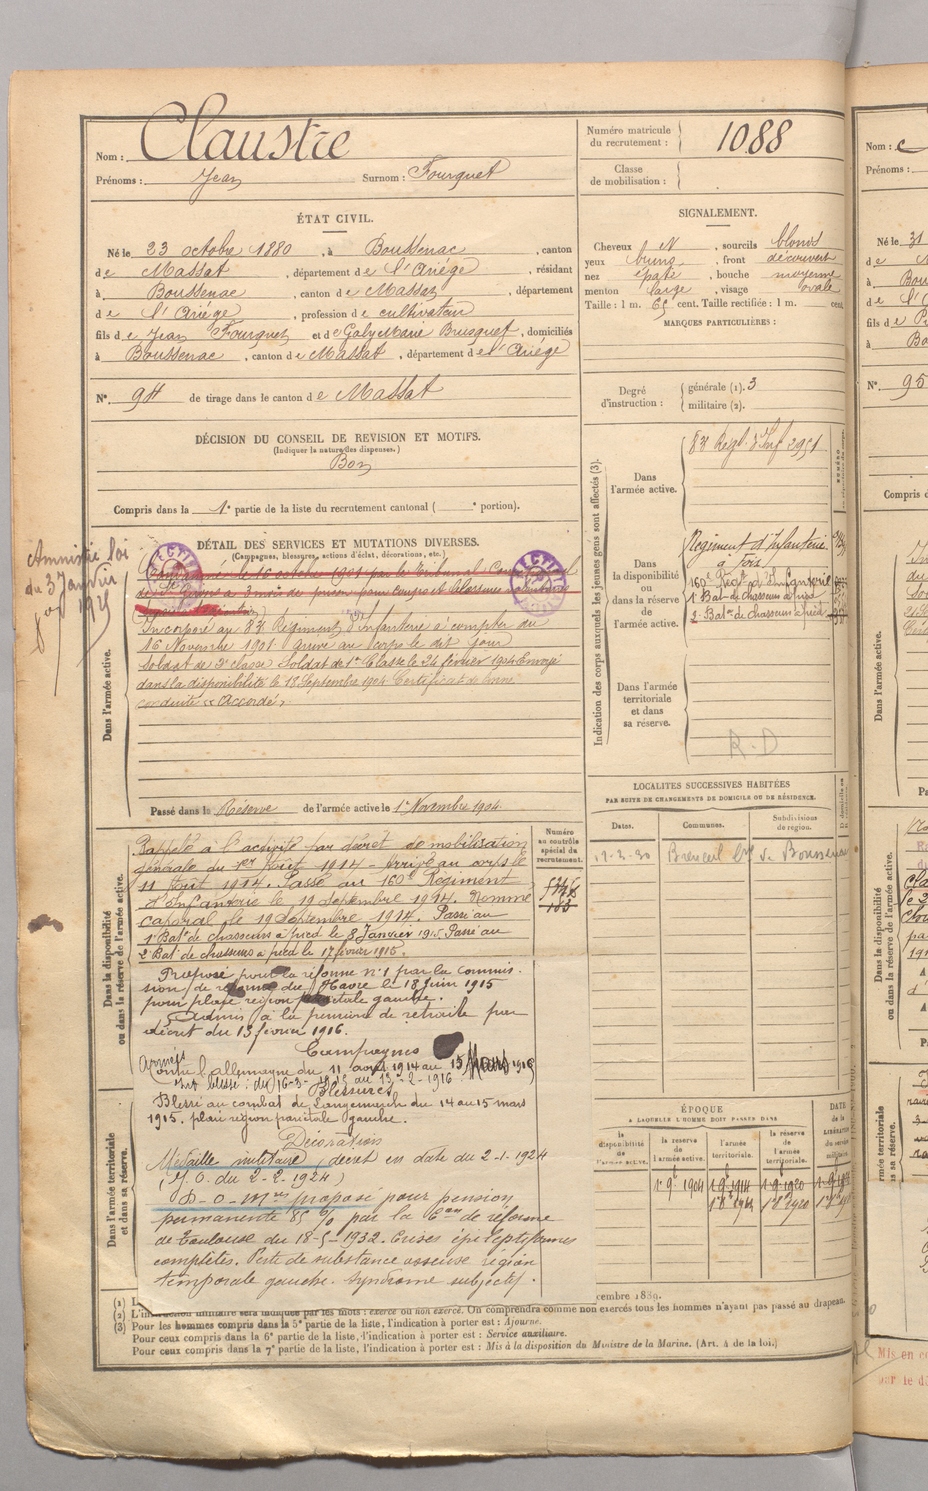 Nom : Claustre
Prénoms : Jean Surnom : Fourquet
Numéro matricule du recrutement : 1088
Classe de mobilisation :
ÉTAT CIVIL.
Né le 23 octobre 1880, à Boussenac, canton
de Massat, département de l'Ariège, résidant
à Boussenac, canton de Massat, département
de l'Ariège, profession de cultivateur
fils de Jean Fourquet et de Galy Marie Brusquet, domiciliés
à Boussenac, canton de Massat, département de l'Ariège
N°. 94 de tirage dans le canton de Massat
DÉCISION DU CONSEIL DE REVISION ET MOTIFS.
(Indiquer la nature des dispenses.)
Bon
Compris dans la 1e partie de la liste du recrutement cantonal ( e portion).
SIGNALEMENT.
Cheveux N, sourcils blonds
yeux bruns, front découvert
nez épaté, bouche moyenne
menton large, visage ovale
Taille : 1 m. 65 cent. Taille rectifiée : 1 m. cent.
MARQUES PARTICULIÈRES :
Degré d'instruction : générale (1). 3
militaire (2).
Indication des corps auxquels les jeunes gens sont affectés (3).
Dans l'armée active.
83e Régt d'Inf 2951
Dans la disponibilité ou dans la réserve de l'armée active.
Régiment d'Infanterie
à Foix
160e Régt d'Infanterie
1r Bat. de chasseurs à pied
2e Bat.on de chasseurs à pied
Dans l'armée territoriale et dans sa réserve.
R. D
DÉTAIL DES SERVICES ET MUTATIONS DIVERSES.
(Campagnes, blessures, actions d'éclat, décorations, etc.)
Amnistié loi
du 3 Janvier
1925
Dans l'armée active.
le 16 octobre 1901 par le Tribunal
de St Girons à 3 mois de prison pour coups et blessures
Incorporé au 83e Régiment d'Infanterie à compter du
16 Novembre 1901 arrivé au corps le dit jour
Soldat de 2e classe Soldat de 1re Classe le 24 février 1904 Envoyé
dans la disponibilité le 18 Septembre 1904 Certificat de bonne
conduite « Accordé »
Passé dans la Réserve de l'armée active le 1er Novembre 1904
Dans la disponibilité ou dans la réserve de l'armée active.
Numéro au contrôle spécial du recrutement.
Rappelé à l'activité par décret de mobilisation
générale du 1er Août 1914 - Arrivé au corps le
11 Août 1914. Passé au 160e Régiment
d'Infanterie le 19 Septembre 1914. Nommé
caporal le 19 Septembre 1914. Passé au
1r Bat.n de chasseurs à pied le 8 Janvier 1915. Passé au
2e Bat.on de chasseurs à pied le 17 février 1915.
Proposé pour la réforme n°1 par la commis.
sion de réforme du Havre le 18 juin 1915
pour plaie région pariétale gauche.
Admis à la pension de retraite par
décret du 13 février 1916.
Campagnes
contre l'allemagne du 11 août 1914 au 15 Mars 1915
Int. blessé : du 16-3-1915 au 13-2-1916
Blessures
Blessé au combat de Langemarck du 14 au 15 mars
1915. plaie région pariétale gauche.
Dans l'armée territoriale et dans sa réserve.
Décoration
Médaille militaire, décret en date du 2-1-1924
(J. O. du 2-2-1924)
proposé pour pension
permanente 85 % par la Con de réforme
de Toulouse du 18-5-1932. Crises épileptiformes
complètes. Perte de substance osseuse région
temporale gauche. Syndrome subjectif.
LOCALITES SUCCESSIVES HABITÉES
PAR SUITE DE CHANGEMENTS DE DOMICILE OU DE RÉSIDENCE.
Dates. Communes. Subdivisions de région.
ÉPOQUE
A LAQUELLE L'HOMME DOIT PASSER DANS
la disponibilité de l'armée active. la réserve de l'armée active. l'armée territoriale. la réserve de l'armée territoriale.
DATE de la LIBÉRATION du service militaire.
1 9e 1904 1 9e 1914 1 9e 1920
cembre 1889.
(2) L'instruction militaire sera indiquée par les mots : exercé ou non exercé. On comprendra comme non exercés tous les hommes n'ayant pas passé au drapeau.
(3) Pour les hommes compris dans la 5e partie de la liste, l'indication à porter est : Ajourné.
Pour ceux compris dans la 6e partie de la liste, l'indication à porter est : Service auxiliaire.
Pour ceux compris dans la 7e partie de la liste, l'indication à porter est : Mis à la disposition du Ministre de la Marine. (Art. 4 de la loi.)